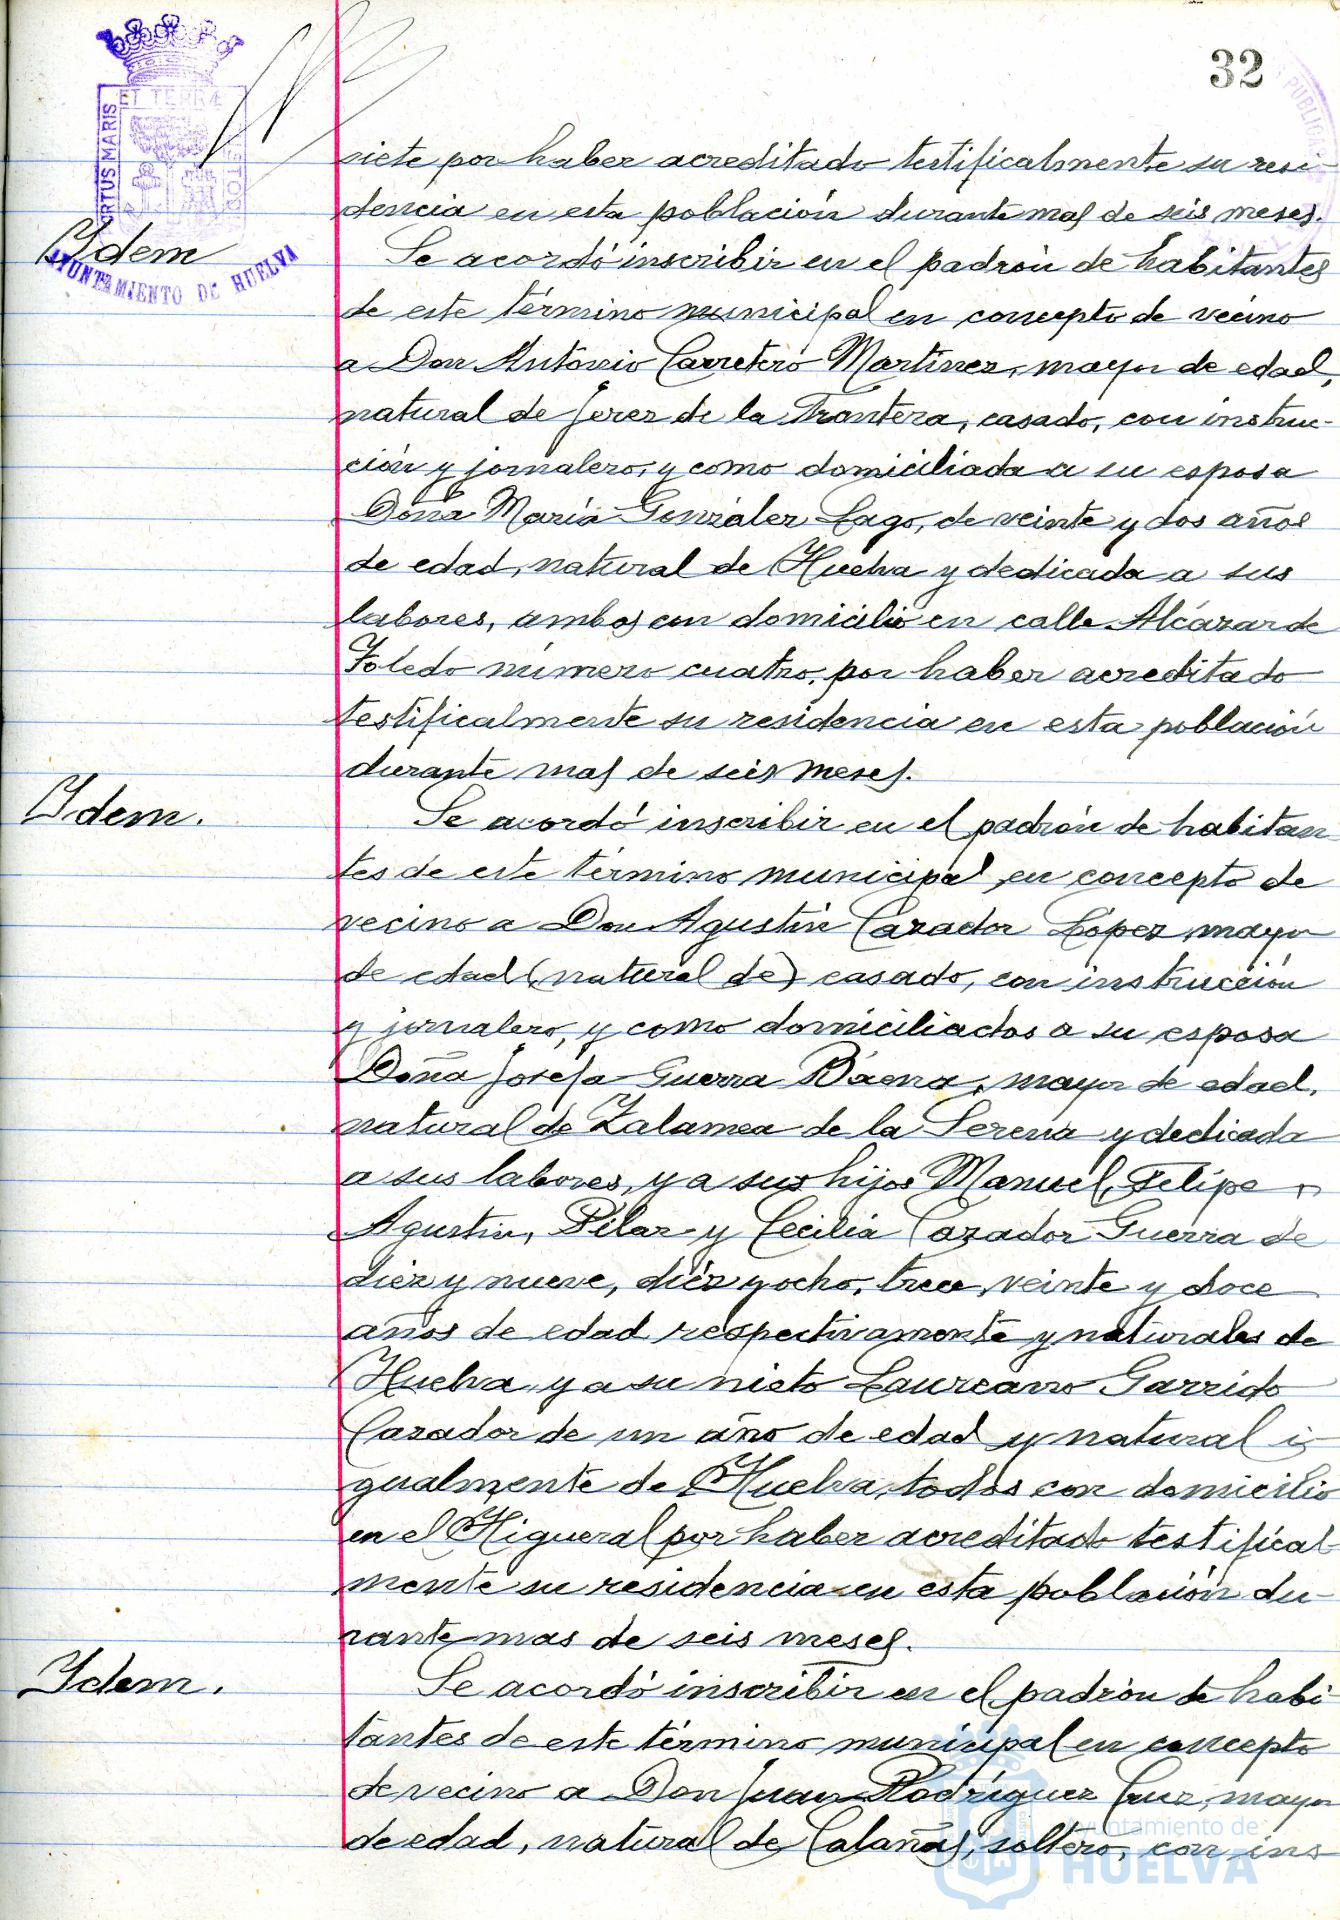 32
PORTUS MARIS
ET TERRÆ
CUSTODIA
AYUNTAMIENTO DE HUELVA
siete por haber acreditado testificalmente su resi-
dencia en esta población durante mas de seis meses.
Idem
Se acordó inscribir en el padrón de habitantes
de este término municipal en concepto de vecino
a Don Antonio Carretero Martínez, mayor de edad,
natural de Jerez de la Frontera, casado, con instruc-
ción y jornalero, y como domiciliada a su esposa
Doña María González Lago, de veinte y dos años
de edad, natural de Huelva y dedicada a sus
labores, ambos con domicilio en calle Alcázar de
Toledo número cuatro, por haber acreditado
testificalmente su residencia en esta población
durante mas de seis meses.
Idem.
Se acordó inscribir en el padrón de habitan-
tes de este término municipal en concepto de
vecino a Don Agustín Cazador López mayor
de edad (natural de) casado, con instrucción
y jornalero, y como domiciliados a su esposa
Doña Josefa Guerra Báena, mayor de edad,
natural de Zalamea de la Serena y dedicada
a sus labores, y a sus hijos Manuel, Felipe,
Agustin, Pilar y Cecilia Cazador Guerra de
diez y nueve, diez y ocho, trece, veinte y doce
años de edad respectivamente y naturales de
Huelva y a su nieto Laureano Garrido
Cazador de un año de edad y natural i-
gualmente de Huelva, todos con domicilio
en el Higueral por haber acreditado testifical-
mente su residencia en esta población du-
rante mas de seis meses.
Idem.
Se acordó inscribir en el padrón de habi-
tantes de este término municipal en concepto
de vecino a Don Juan Rodríguez Cruz, mayor
de edad, natural de Calañas, soltero, con ins-
Ayuntamiento de
HUELVA